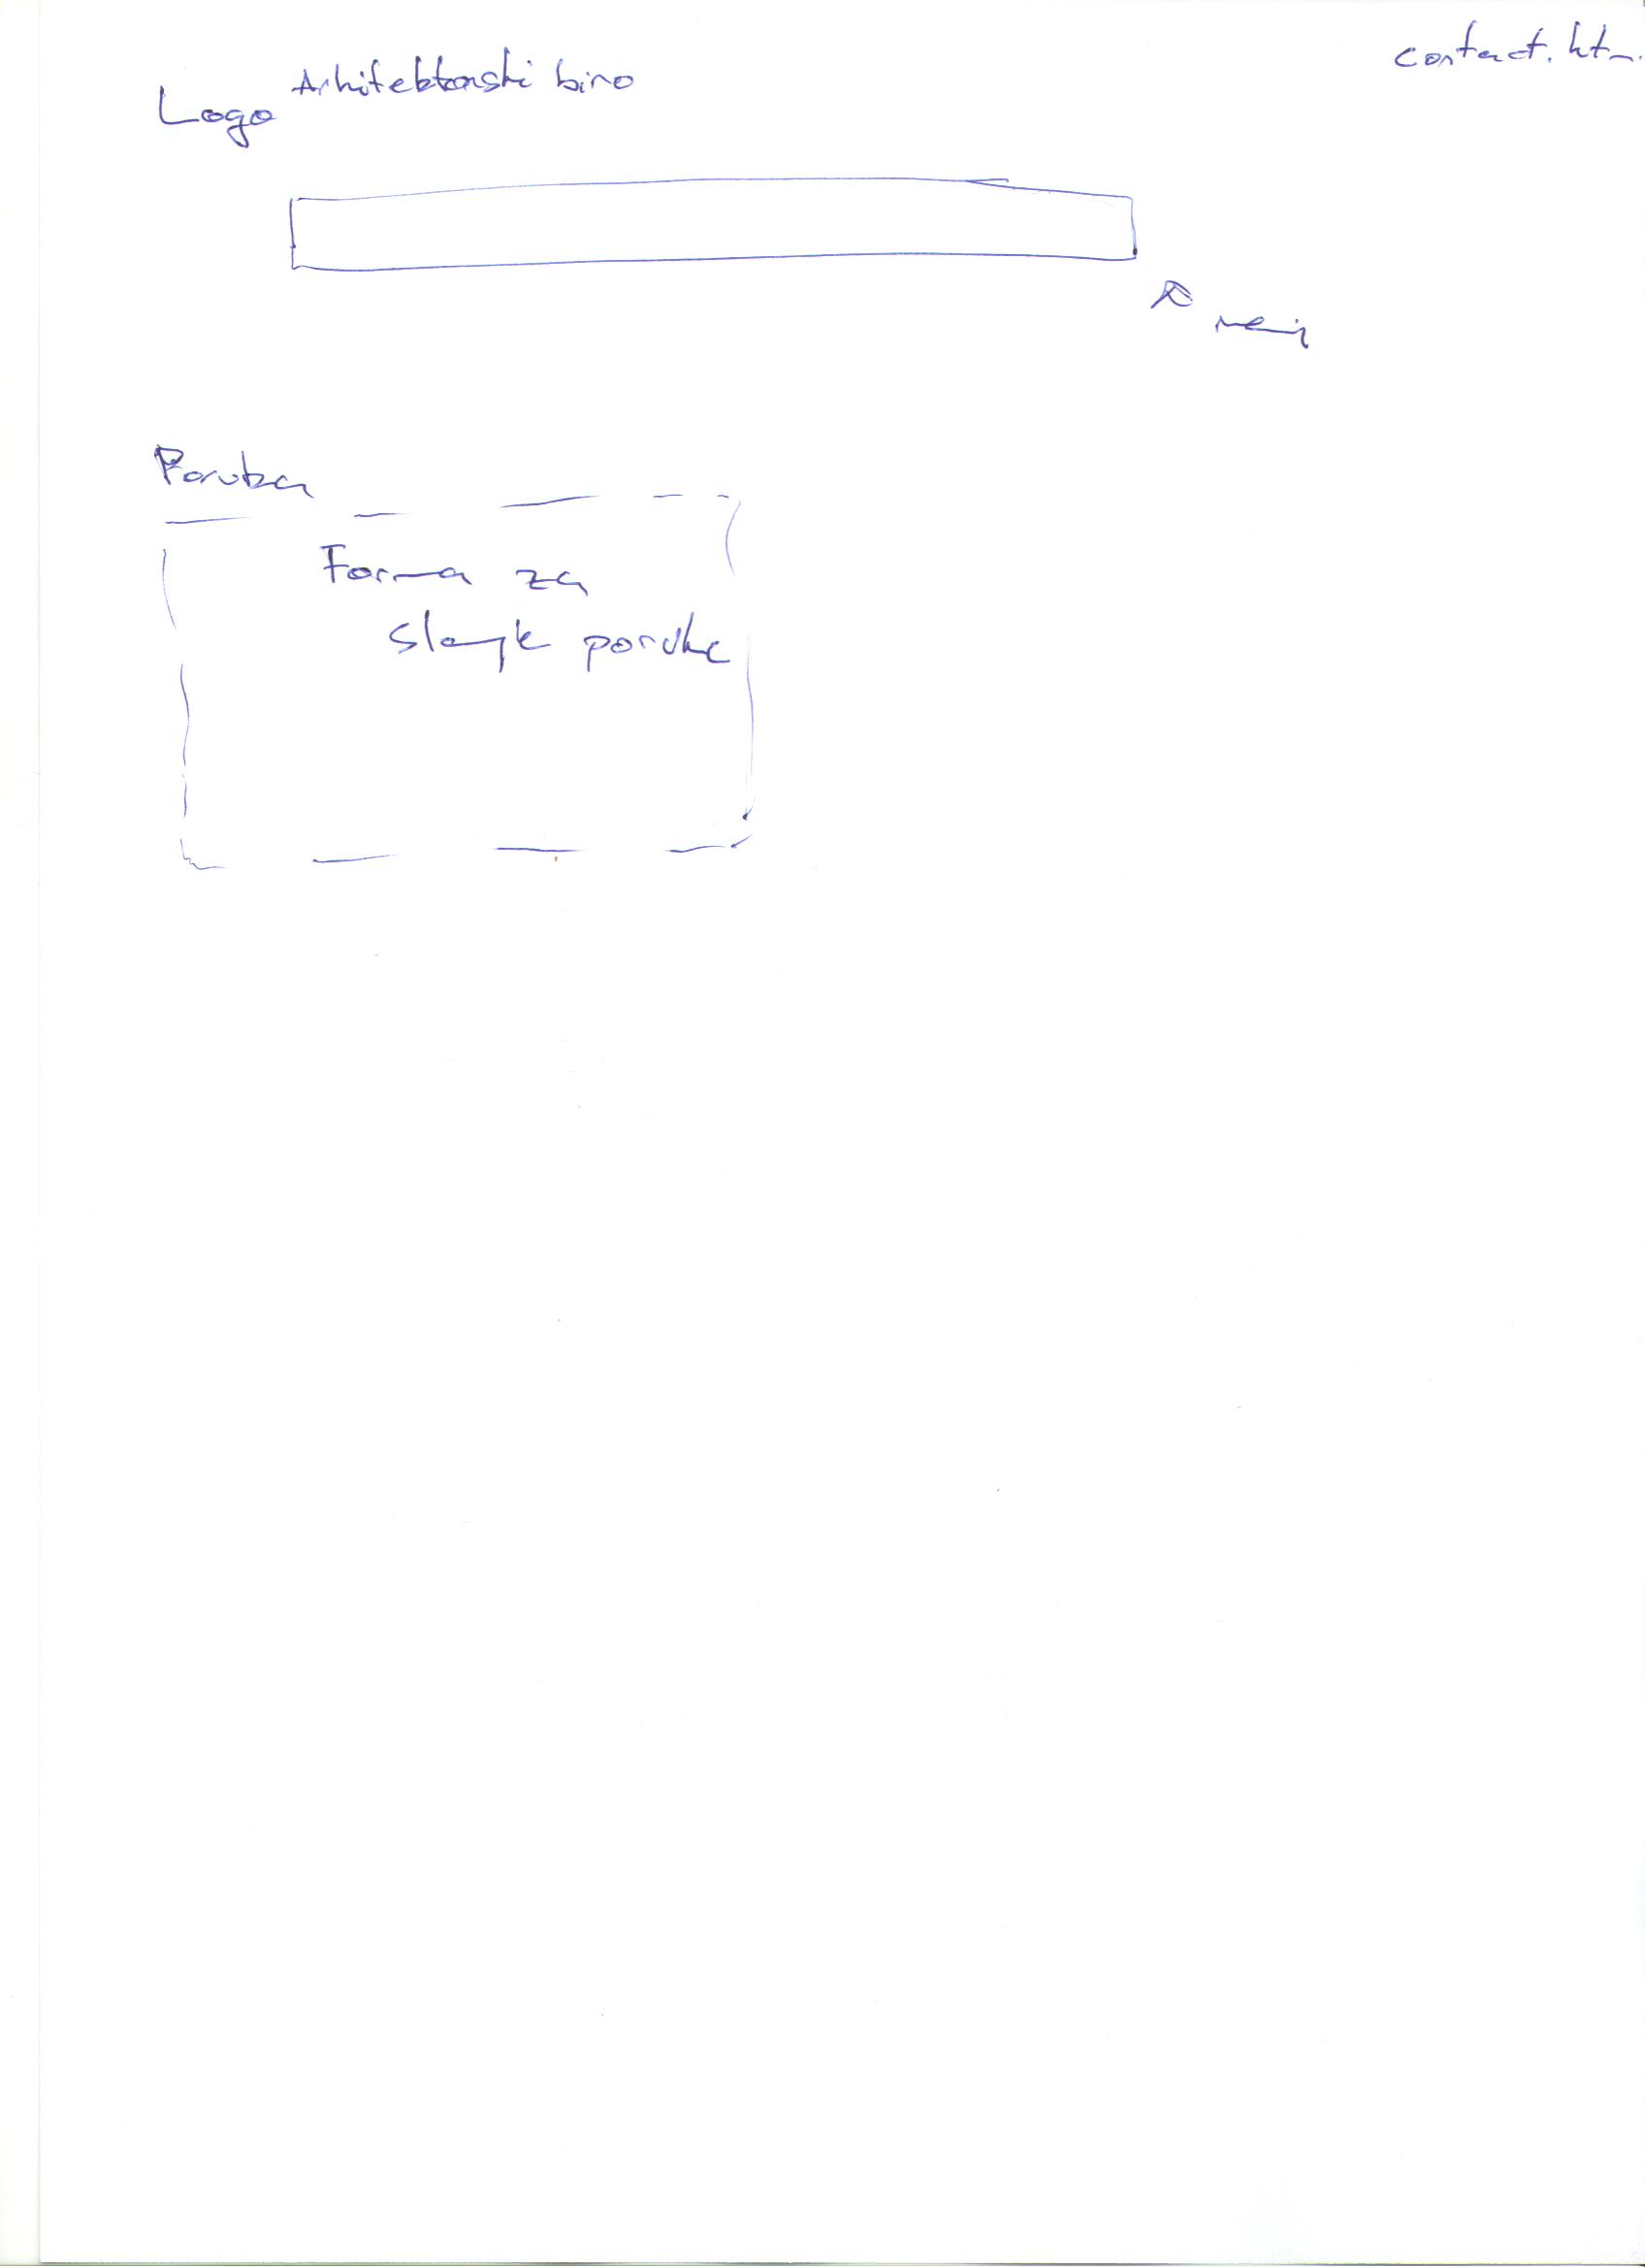 contact. htm
Logo Arhitektonski biro
meij
Poruka
Forma za
slanje poruke